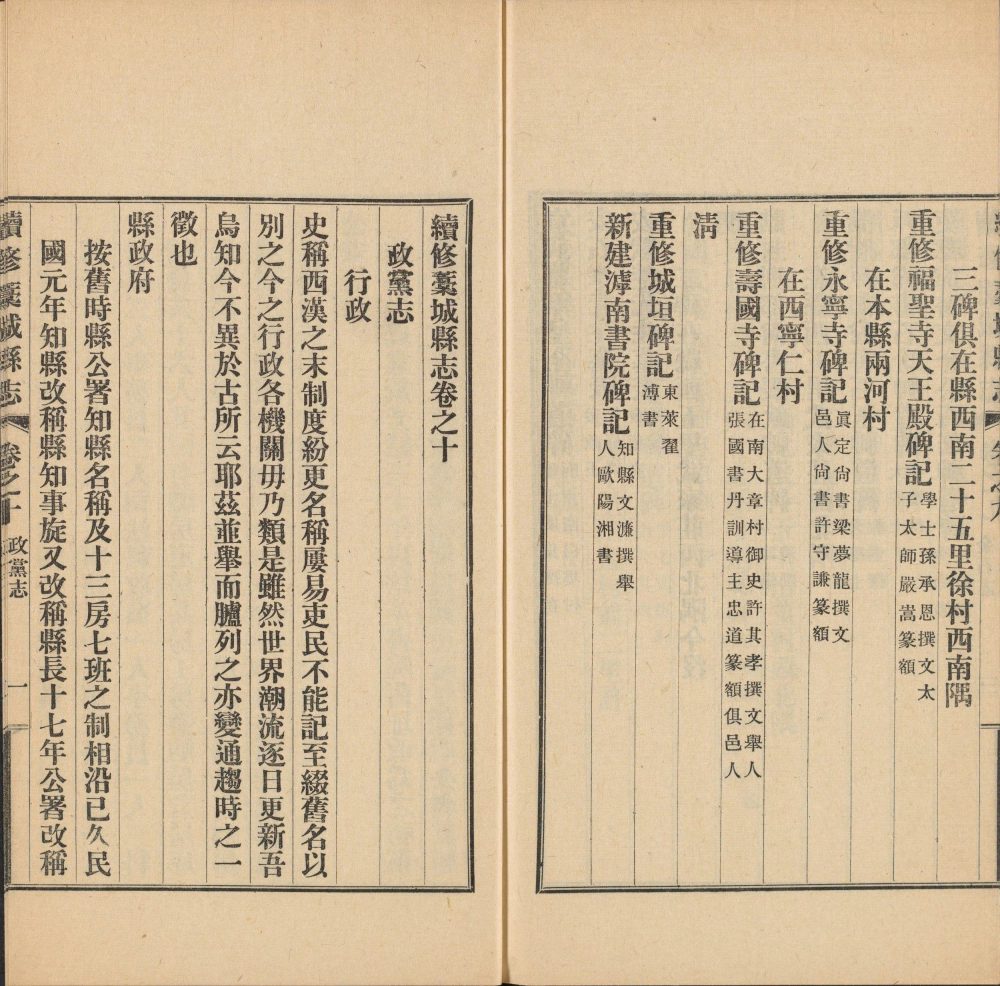 三碑俱在縣西南二十五里徐村西南隅
重修福聖寺天王殿碑記學士孫承恩撰文太子太師嚴嵩篆額
在本縣兩河村
重修永寧寺碑記眞定尙書梁夢龍撰文邑人尙書許守謙篆額
在西寧仁村
重修壽國寺碑記在南大章村御史許其孝撰文舉人張國書丹訓導主忠道篆額俱邑人
淸
重修城垣碑記東萊翟溥書
新建滹南書院碑記知縣文濂撰舉人歐陽湘書
續修藁城縣志卷之十
政黨志
行政
史稱西漢之末制度紛更名稱屢易吏民不能記至綴舊名以
別之今之行政各機關毋乃類是雖然世界潮流逐日更新吾
烏知今不異於古所云耶茲並舉而臚列之亦變通趨時之一
徵也
縣政府
按舊時縣公署知縣名稱及十三房七班之制相沿已久民
國元年知縣改稱縣知事旋又改稱縣長十七年公署改稱
續修藁城縣志 卷之十 政黨志 一